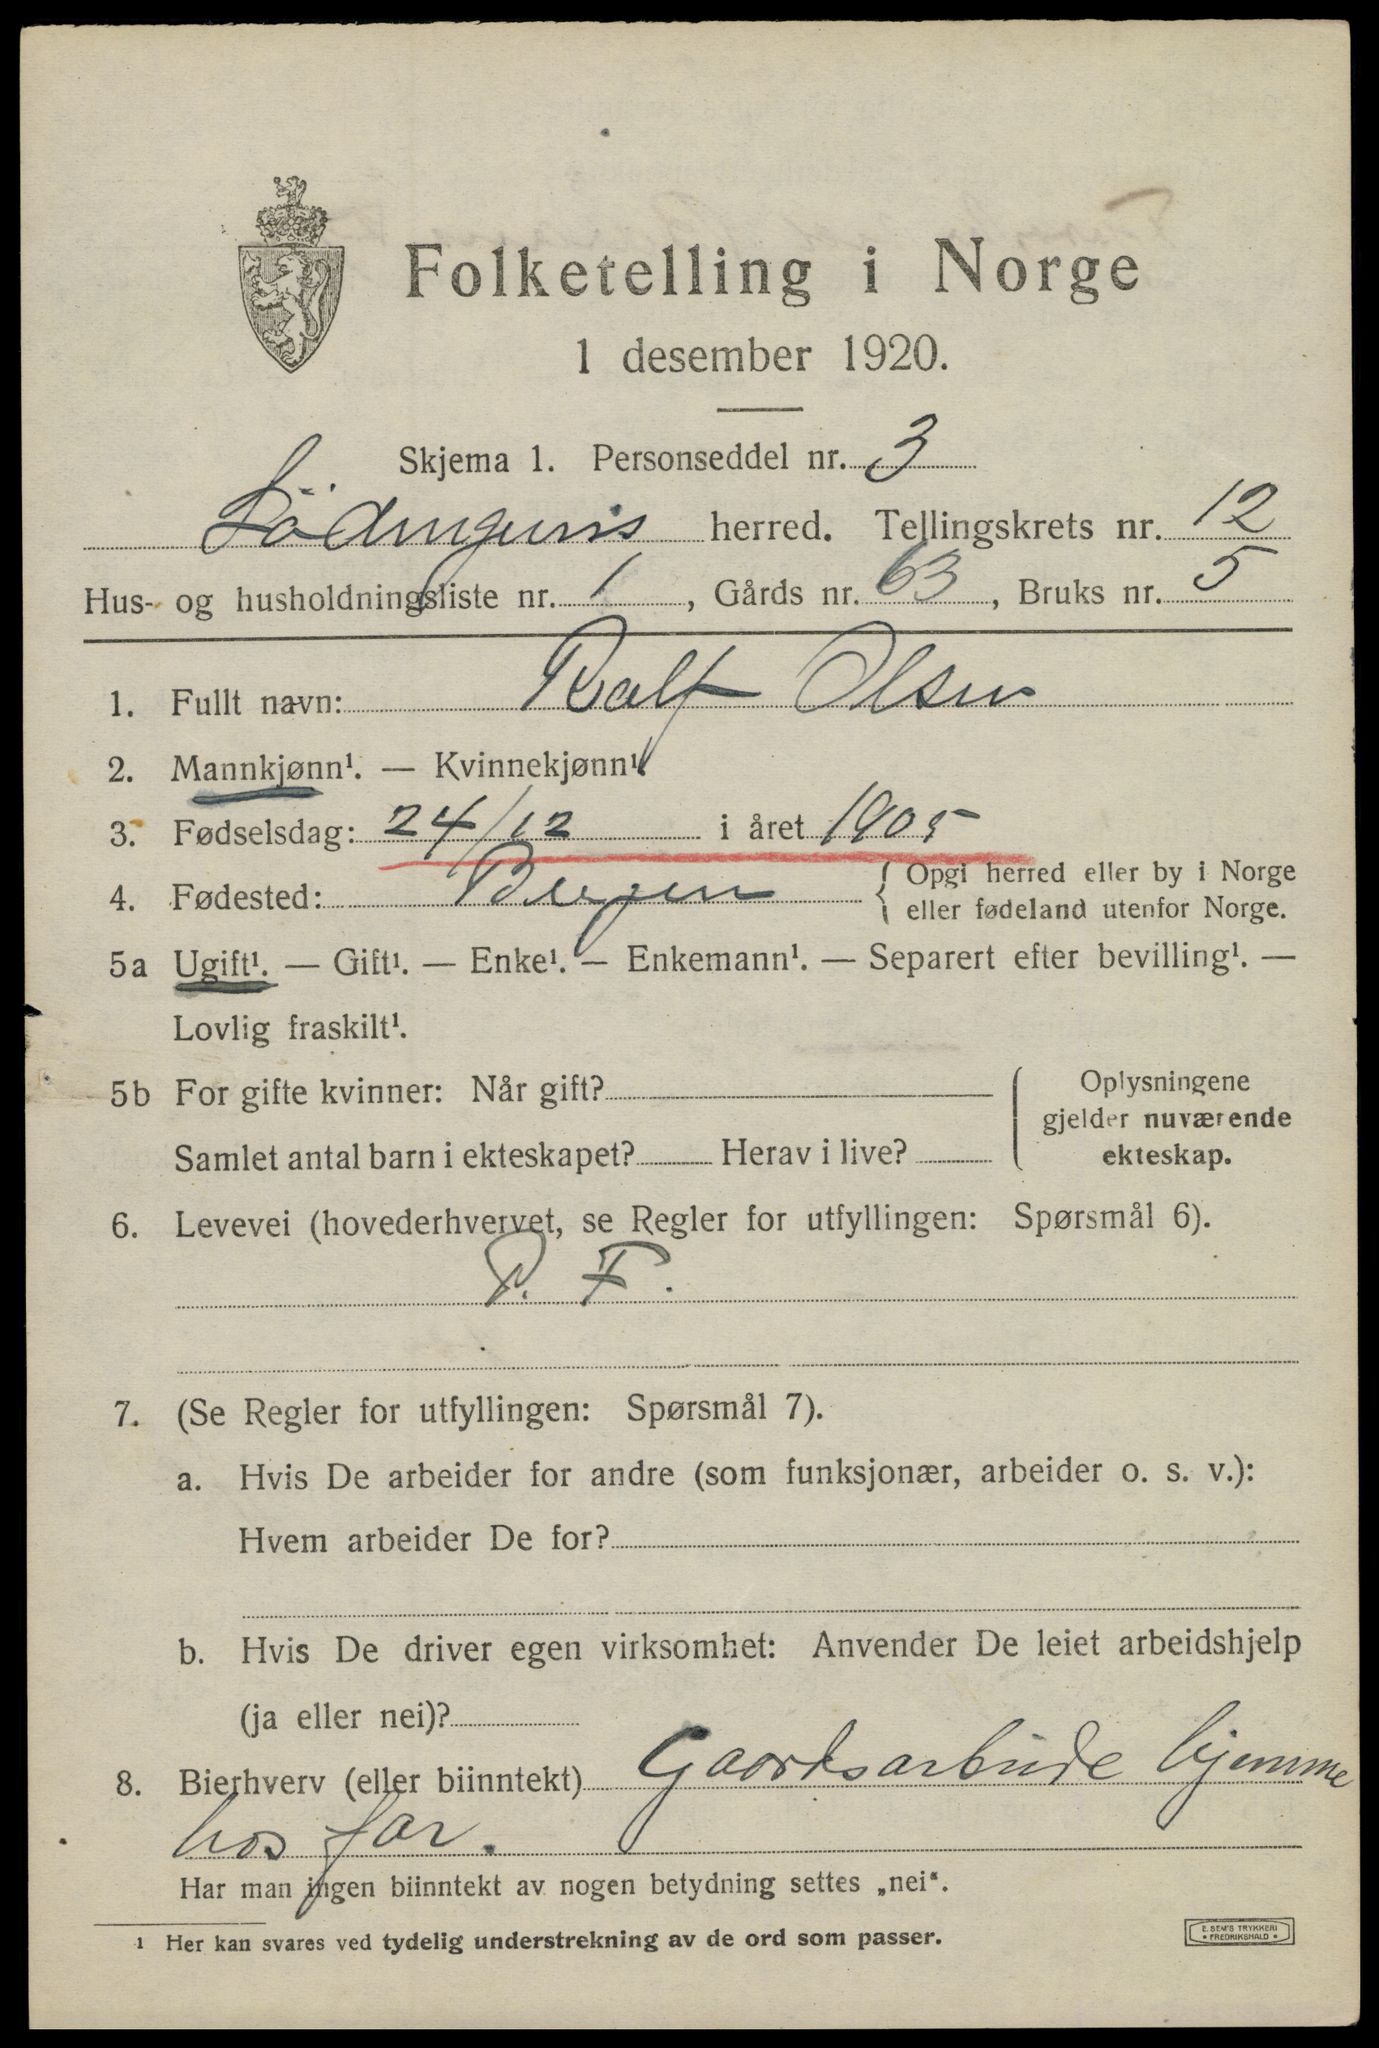 Folketelling i Norge
1 desember 1920.
Skjema 1. Personseddel nr. 3
Lödingens herred. Tellingskrets nr. 12
Hus- og husholdningsliste nr. 1, Gårds nr. 63, Bruks nr. 5
1. Fullt navn: Ralf Olsen
2. Mannkjønn¹. — Kvinnekjønn¹.
3. Fødselsdag: 24/12 i året 1905
4. Fødested: Bergen { Opgi herred eller by i Norge
eller fødeland utenfor Norge.
5a Ugift¹. — Gift¹. — Enke¹. — Enkemann¹. — Separert efter bevilling¹. —
Lovlig fraskilt¹.
5b For gifte kvinner: Når gift?
Samlet antal barn i ekteskapet? Herav i live?
Oplysningene
gjelder nuværende
ekteskap.
6. Levevei (hovederhvervet, se Regler for utfyllingen: Spørsmål 6).
P. F.
7. (Se Regler for utfyllingen: Spørsmål 7).
a. Hvis De arbeider for andre (som funksjonær, arbeider o. s. v.):
Hvem arbeider De for?
b. Hvis De driver egen virksomhet: Anvender De leiet arbeidshjelp
(ja eller nei)?
8. Bierhverv (eller biinntekt) Gaardsarbeide hjemme
hos far.
Har man ingen biinntekt av nogen betydning settes „nei“.
¹ Her kan svares ved tydelig understrekning av de ord som passer.
E. SEM'S TRYKKERI
• FREDRIKSHALD •